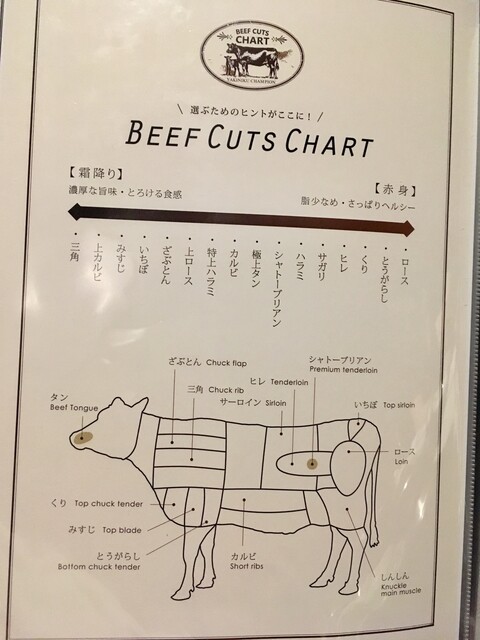 BEEF CUTS
CHART
YAKINIKU CHAMPION
\ 選ぶためのヒントがここに! /
BEEF CUTS CHART
【霜降り】
濃厚な旨味・とろける食感
【赤身】
脂少なめ・さっぱりヘルシー
・三角
・上カルビ
・みすじ
・いちぼ
・ざぶとん
・上ロース
・特上ハラミ
・カルビ
・極上タン
・シャトーブリアン
・ハラミ
・サガリ
・ヒレ
・くり
・とうがらし
・ロース
ざぶとん Chuck flap
シャトーブリアン
Premium tenderloin
ヒレ Tenderloin
三角 Chuck rib
サーロイン Sirloin
タン
Beef Tongue
いちぼ Top sirloin
ロース
Loin
くり Top chuck tender
みすじ Top blade
とうがらし
Bottom chuck tender
カルビ
Short ribs
しんしん
Knuckle
main muscle